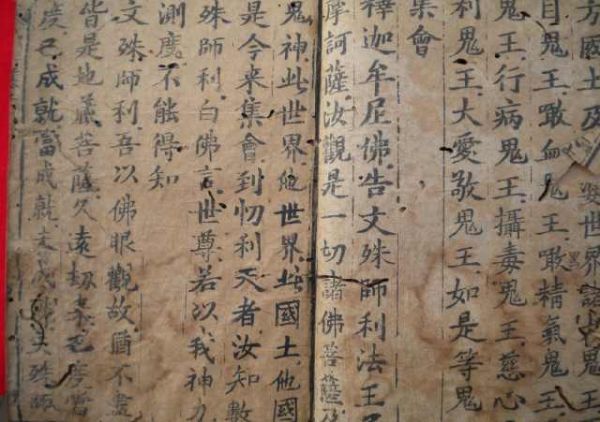 方國土及世界諸鬼王
目鬼王噉血鬼王噉精氣鬼王
鬼王行病鬼王攝毒鬼王慈心
利鬼王大愛敬鬼王如是等鬼
集會
釋迦牟尼佛告文殊師利法王
摩訶薩汝觀是一切諸佛菩薩
鬼神此世界他世界此國土他國
是今來集會到忉利天者汝知數
殊師利白佛言世尊若以我神力
測度不能得知
文殊師利吾以佛眼觀故猶不盡
皆是地藏菩薩久遠劫來已度當
度已成就當成就未成就文殊師